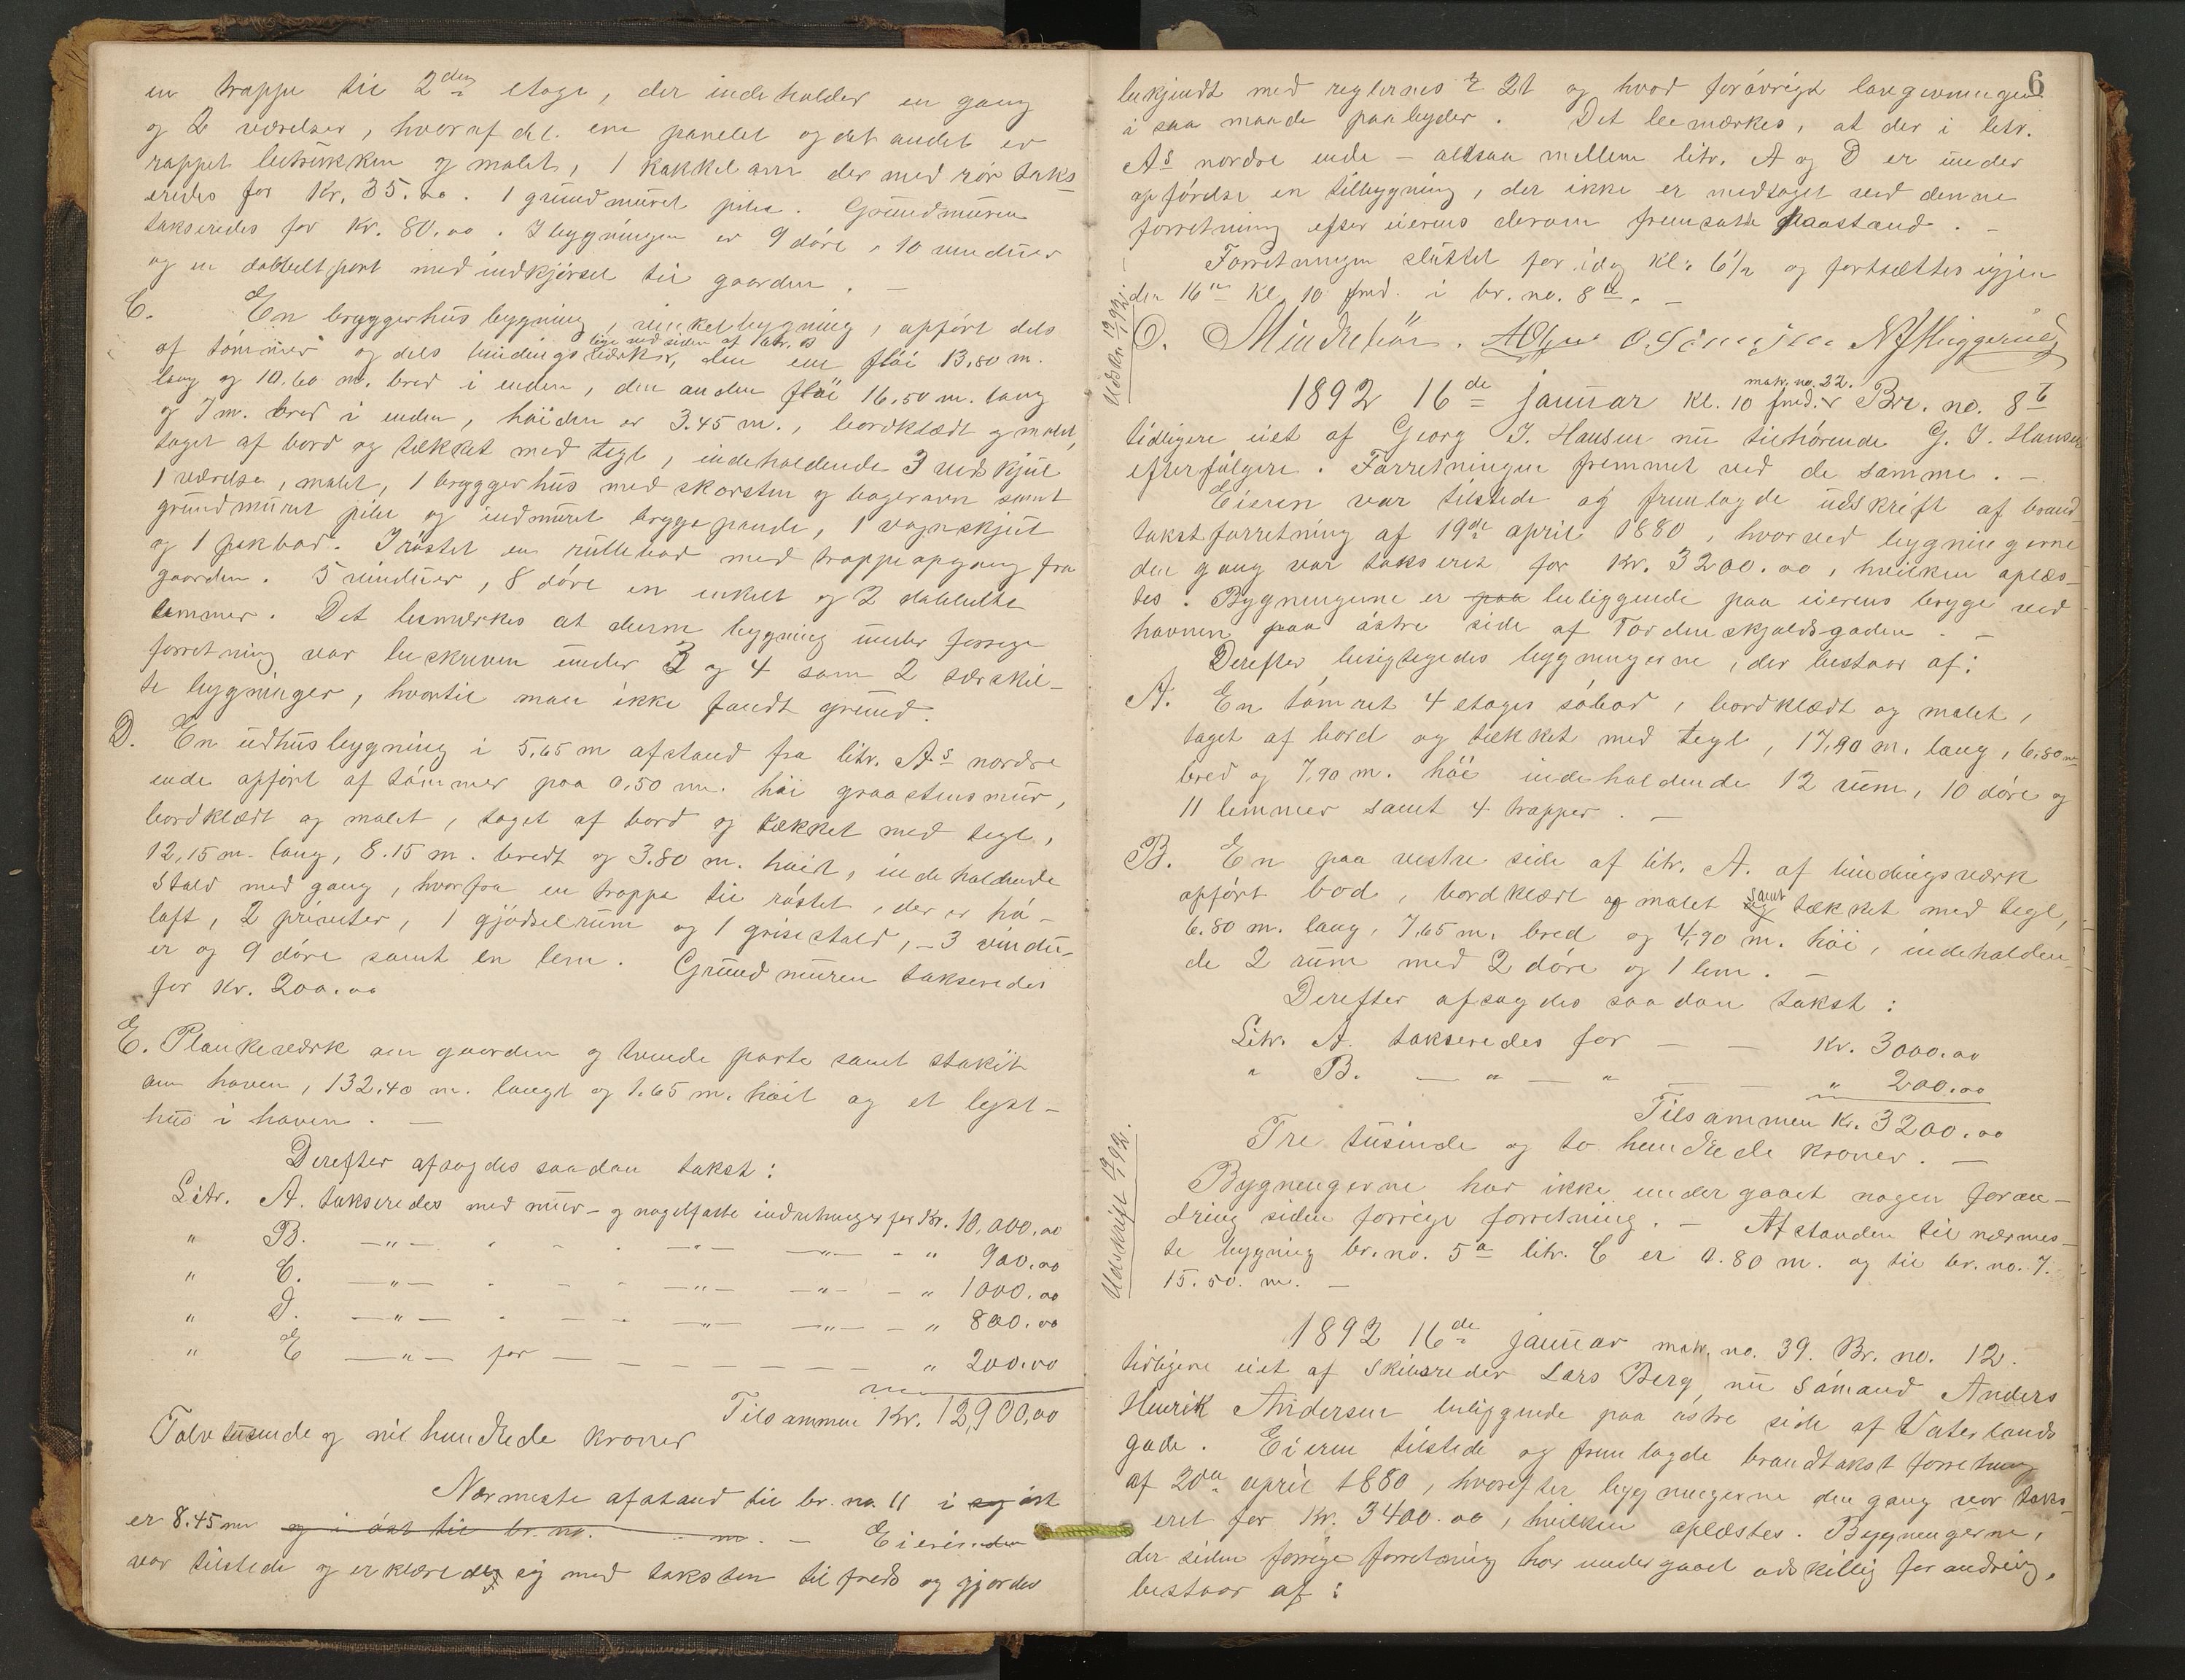 en trappe til 2den etage, der indeholder en gang
og 2 værelser, hvoraf det ene panelet og det andet er
rappet betrukken og malet, 1 kakkelovn der med rör taks-
eredes for Kr. 35.00. 1 grundmuret pibe. Grundmuren
takseredes for Kr. 80.00. I bygningen er 9 döre, 10 vinduer
og en dobbelt port med indkjörsel til gaarden. —
C. En bryggerhus bygning, vinkelbygning, opfört dels
af tömmer og dels bindingsværk, lige ved siden af litr. B den ene flöi 13,80 m.
lang og 10.60 m. bred i enden, den anden flöi 16,50 m. lang
og 7 m. bred i enden, höiden er 3.45 m., bordklædt og malet,
taget af bord og tækket med tegl, indeholdende 3 vedskjul
1 værelse, malet, 1 bryggerhus med skorsten og bagerovn samt
grundmuret pibe og indmuret bryggepande, 1 vognskjul
og 1 pakbod. I röstet en rullebod med trappeopgang fra
gaarden. 5 vinduer, 8 döre en enkelt og 2 dobbelte
lemmer. Det bemærkes at denne bygning under forrige
forretning var beskreven under 3 og 4 som 2 særskil-
te bygninger, hvortil man ikke fandt grund.
D. En udhusbygning i 5,65 m afstand fra litr. As nordre
ende opfört af tömmer paa 0,50 m. höi graastensmur,
bordklædt og malet, taget af bord og tækket med tegl,
12,15 m. lang, 8.15 m. bredt og 3.80 m. höit, indeholdende
stald med gang, hvorfra en trappe til röstet, der er hö-
loft, 2 priveter, 1 gjödselrum og 1 grisestald, – 3 vindu-
er og 9 döre samt en lem. Grundmuren takseredes
for Kr. 200.00
E. Plankeværk om gaarden og tvende porte samt stakit
om haven, 132.40 m. langt og 1.65 m. höit og et lyst-
hus i haven. —
Derefter afsagdes saadan takst:
Litr. A. takseredes med mur- og nagelfaste indretninger for Kr. 10,000.00
" B. —"— " 900.00
" C. —"— " 1000.00
" D. —"— " 800.00
" E —"— for — " 200.00
Tilsammen Kr. 12,900,00
Tolvtusinde og nihundrede kroner
Nærmeste afstand til br. no. 11 i og öst
er 8.45 m og i öst til br. no. m. — Eieren
var tilstede og erklærede sig med taksten tilfreds og gjordes
6
bekjendt med reglernes § 21 og hvad forövrigt lovgivningen
i saa maade paabyder. Det bemærkes, at der i litr.
As nordre ende – altsaa mellem litr. A og D er under
opförelse en tilbygning, der ikke er medtaget ved denne
forretning efter eierens derom fremsatte paastand. —
Forretningen sluttet for idag kl. 6½ og fortsættes igjen
den 16de kl. 10 fmd. i br. no. 8b. —
1892 16de januar kl. 10 fmd. matr. no. 22. Br. no. 8b
tidligere eiet af Georg J. Hansen nu tilhörende G. J. Hansens
efterfölgere. Forretningen fremmet ved de samme. —
Eieren var tilstede og fremlagde udskrift af brand-
takstforretning af 19de april 1880, hvorved bygningerne
den gang var takseret for Kr. 3200.00, hvilken oplæs-
tes. Bygningerne er paa beliggende paa eierens brygge ved
havnen paa östre side af Tordenskjoldsgaden. —
Derefter besigtigedes bygningerne, der bestaar af:
A. En tömret 4 etages söbod, bordklædt og malet,
taget af bord og tækket med tegl, 17,90 m. lang, 6.80 m
bred og 7,90 m. höi indeholdende 12 rum, 10 döre og
11 lemmer samt 4 trapper. —
B. En paa vestre side af litr. A. af bindingsværk
opfört bod, bordklædt og malet og samt tækket med tegl,
6.80 m. lang, 7,65 m. bred og 4,90 m. höi, indeholden-
de 2 rum med 2 döre og 1 lem. —
Derefter afsagdes saadan takst:
Litr. A. takseredes for — — Kr. 3000.00
" B. — " — " — — " 200.00
Tilsammen Kr. 3200.00
Tre tusinde og to hundrede kroner. —
Bygningerne har ikke undergaaet nogen foran-
dring siden forrige forretning. — Afstanden til nærmes-
te bygning br. no. 5a litr. C er 0.80 m. og til br. no. 7.
15.50. m. —
Udskrift
1892 16de januar matr. no. 39. Br. no. 12.
tidligere eiet af Skibsreder Lars Berg, nu Sömand Anders
Henrik Andersen beliggende paa östre side af Vaterlands
gade. Eieren tilstede og fremlagde brandtakstforretning
af 20de april 1880, hvorefter bygningerne den gang var taks-
eret for Kr. 3400.00, hvilken oplæstes. Bygningerne,
der siden forrige forretning har undergaaet adskillig forandring,
bestaar af: